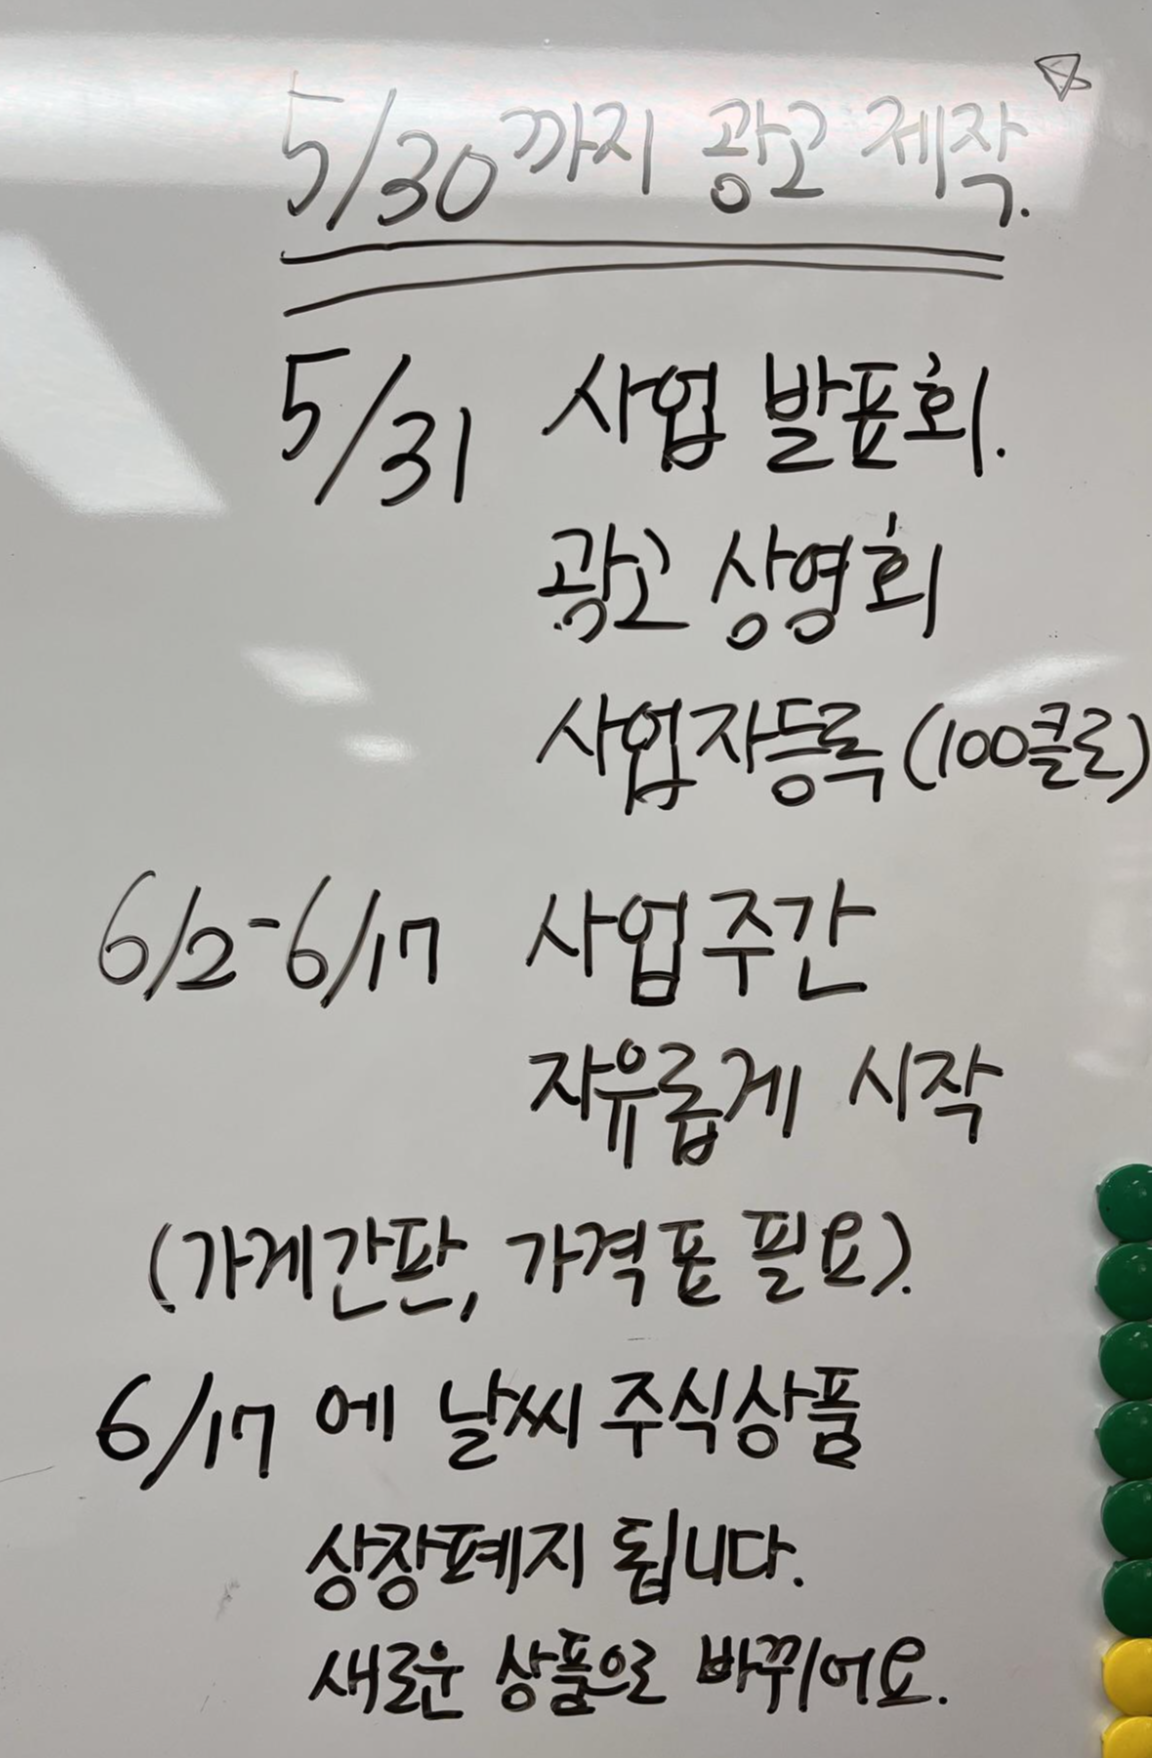 5/30까지 광고 제작.
5/31 사업 발표회.
광고 상영회
사업자등록 (100클로)
6/2-6/17 사업주간
자유롭게 시작
(가게간판, 가격표 필요).
6/17에 날씨 주식상품
상장폐지 됩니다.
새로운 상품으로 바뀌어요.